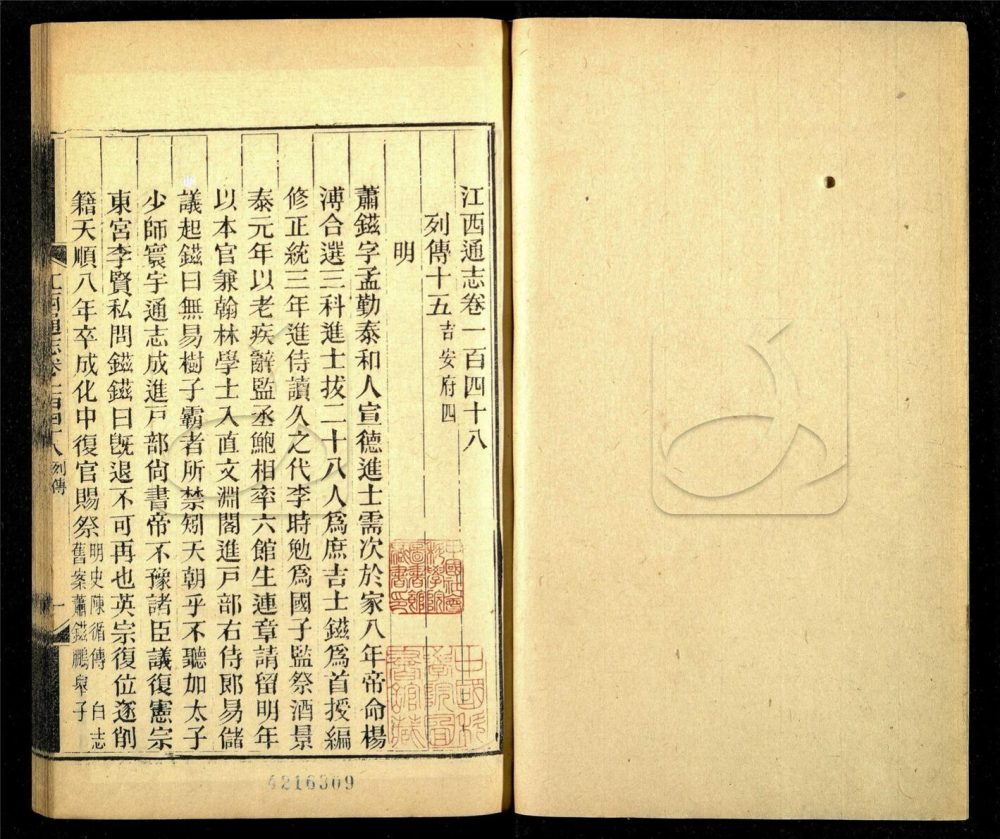 江西通志卷一百四十八
列傳十五吉安府四
明
蕭鎡字孟勤泰和人宣德進士需次於家八年帝命楊
溥合選三科進士拔二十八人爲庶吉士鎡爲首授編
修正統三年進侍讀久之代李時勉爲國子監祭酒景
泰元年以老疾辭監丞鮑相率六館生連章請留明年
以本官兼翰林學士入直文淵閣進戸部右侍郎易儲
議起鎡曰無易樹子霸者所禁矧天朝乎不聽加太子
少師寰宇通志成進戸部尙書帝不豫諸臣議復憲宗
東宮李賢私問鎡鎡曰旣退不可再也英宗復位遂削
籍天順八年卒成化中復官賜祭明史陳循傳 白志
舊案蕭鎡鵬舉子
江西通志卷一百四十八 列傳
一
中國社會
科學院
圖書館
藏書印
4216309